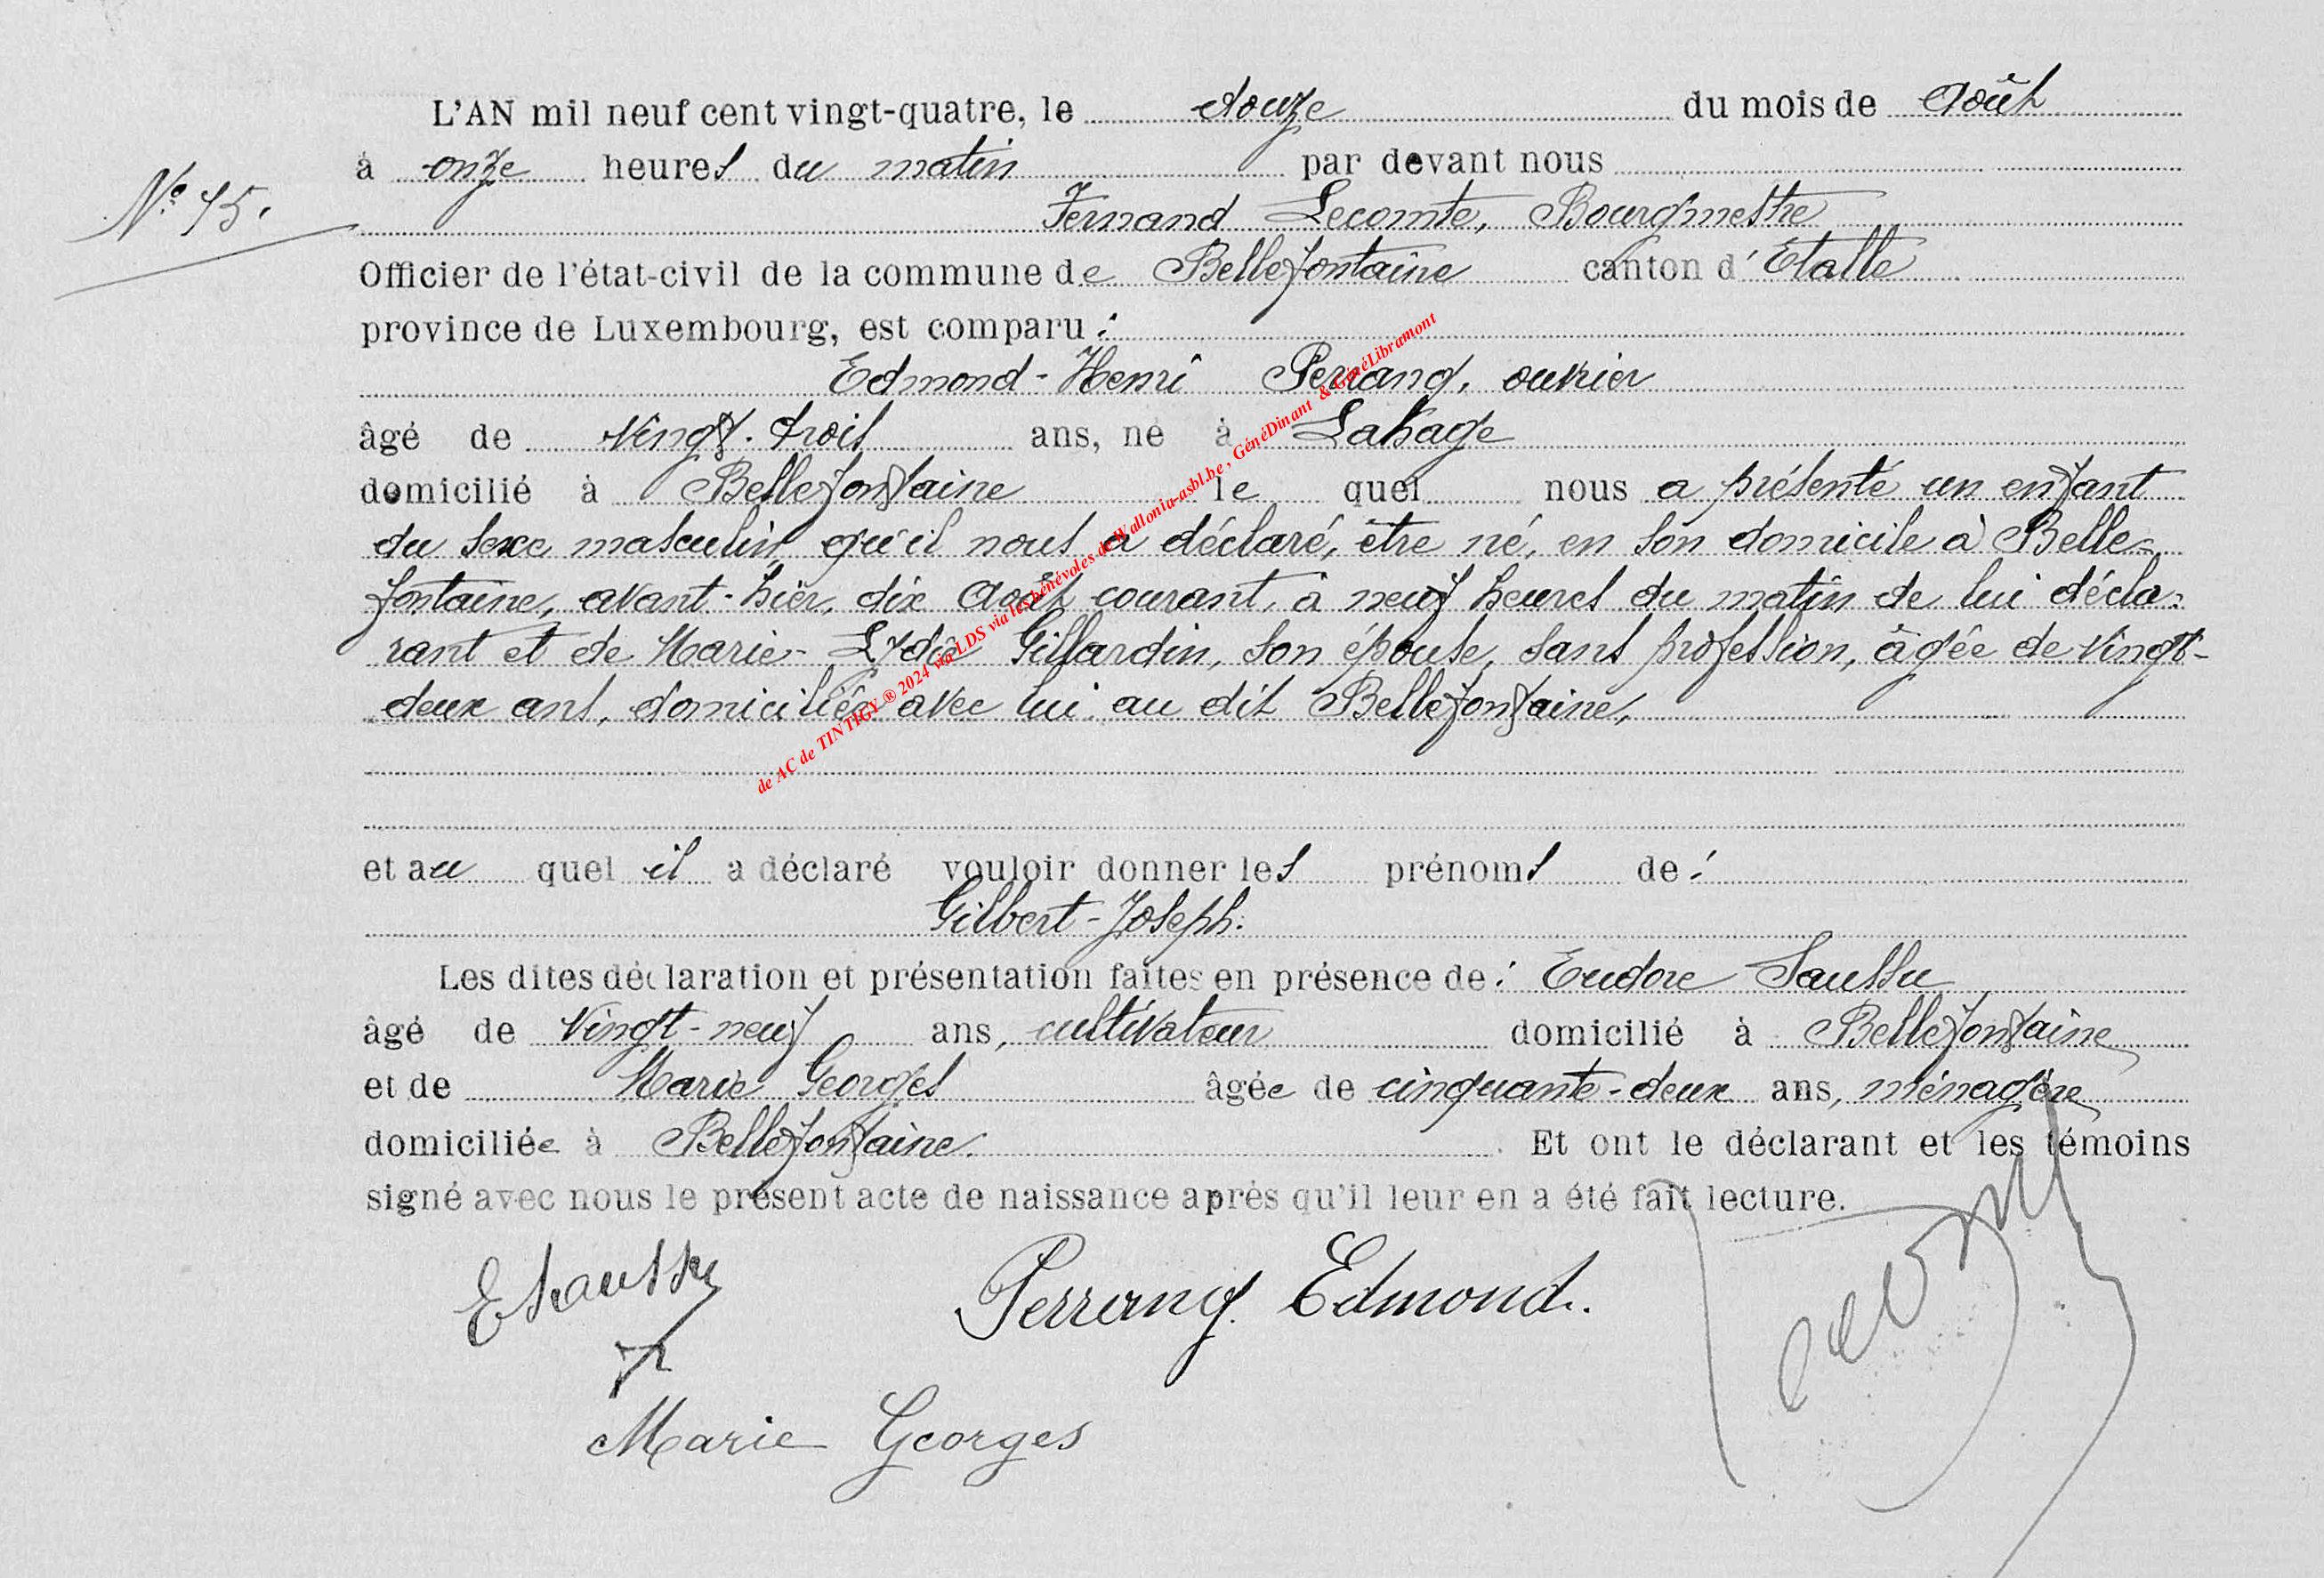 L'AN mil neuf cent vingt-quatre, le douze du mois de Août
à onze heures du matin par devant nous
N° 15.
Fernand Lecomte, Bourgmestre
Officier de l'état-civil de la commune de Bellefontaine canton d'Etalle
province de Luxembourg, est comparu :
Edmond-Henri Perrang, ouvrier
âgé de vingt-trois ans, né à Lahage
domicilié à Bellefontaine le quel nous a présenté un enfant
du sexe masculin qu'il nous a déclaré, être né, en son domicile à Belle=
fontaine, avant-hier, dix Août courant, à neuf heures du matin de lui décla=
rant et de Marie-Lydie Gillardin, son épouse, sans profession, âgée de vingt-
deux ans, domiciliée avec lui au dit Bellefontaine,
et au quel il a déclaré vouloir donner les prénoms de :
Gilbert-Joseph.
Les dites déclaration et présentation faites en présence de : Eudore Saussu
âgé de vingt-neuf ans, cultivateur domicilié à Bellefontaine
et de Marie Georges âgée de cinquante-deux ans, ménagère
domiciliée à Bellefontaine. Et ont le déclarant et les témoins
signé avec nous le présent acte de naissance après qu'il leur en a été fait lecture.
E Saussu
Perrang Edmond.
Marie Georges
de AC de TINTIGY ® 2024 via LDS via les bénévoles de Wallonia-asbl.be , GénéDinant & GénéLibramont